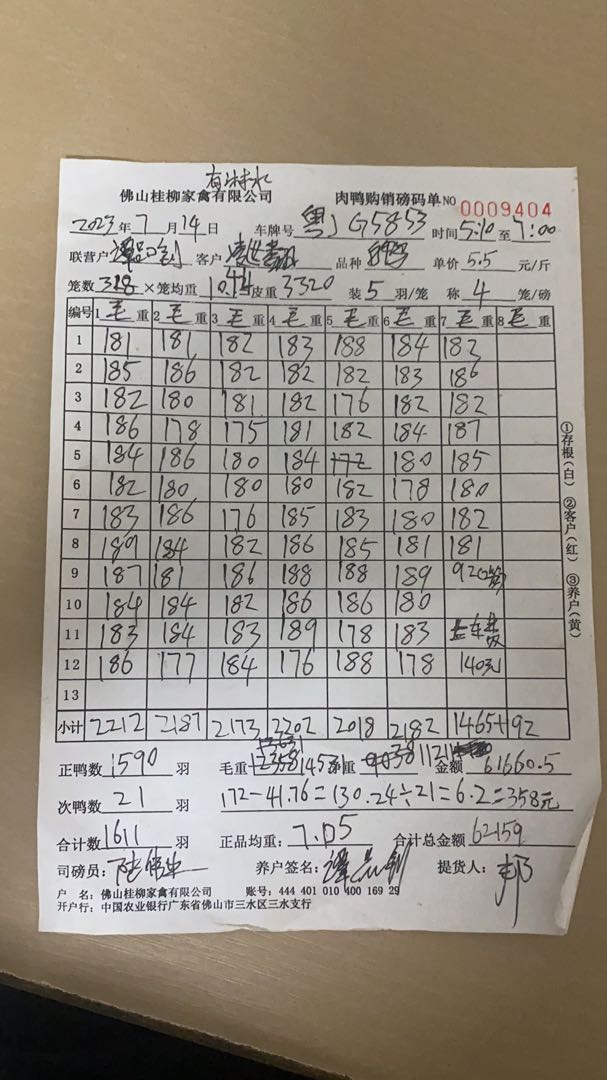 有淋水
佛山桂柳家禽有限公司 肉鸭购销磅码单 NO 0009404
2023年7月14日 车牌号 粤J G5853 时间 5:10 至 7:00
联营户 客户 品种 单价 5.5 元/斤
笼数 318 × 笼均重 10.44 皮重 3320 装 5 羽/笼 称 4 笼/磅
编号 1 毛 重 2 毛 重 3 毛 重 4 毛 重 5 毛 重 6 毛 重 7 毛 重 8 毛 重
1 181 181 182 183 188 184 182
2 185 186 182 182 182 183 186
3 182 180 181 182 176 182 182
4 186 178 175 181 182 184 187
5 184 186 180 184 172 180 185
6 182 180 180 180 182 178 180
7 183 186 176 185 183 180 182
8 189 184 182 186 185 181 181
9 187 181 186 188 188 189 92
10 184 184 182 186 186 180
11 183 184 183 189 178 183 上车费
12 186 177 184 176 188 178 140元
13
小计 2212 2187 2173 2202 2018 2182 1465+92
正鸭数 1590 羽 毛重 14531 净重 11211 金额 61660.5
次鸭数 21 羽 172-41.76=130.24÷21=6.2=358元
合计数 1611 羽 正品均重: 7.05 合计总金额 62159
司磅员: 养户签名: 谭 提货人:
户 名: 佛山桂柳家禽有限公司 账号: 444 401 010 400 169 29
开户行: 中国农业银行广东省佛山市三水区三水支行
①存根(白) ②客户(红) ③养户(黄)